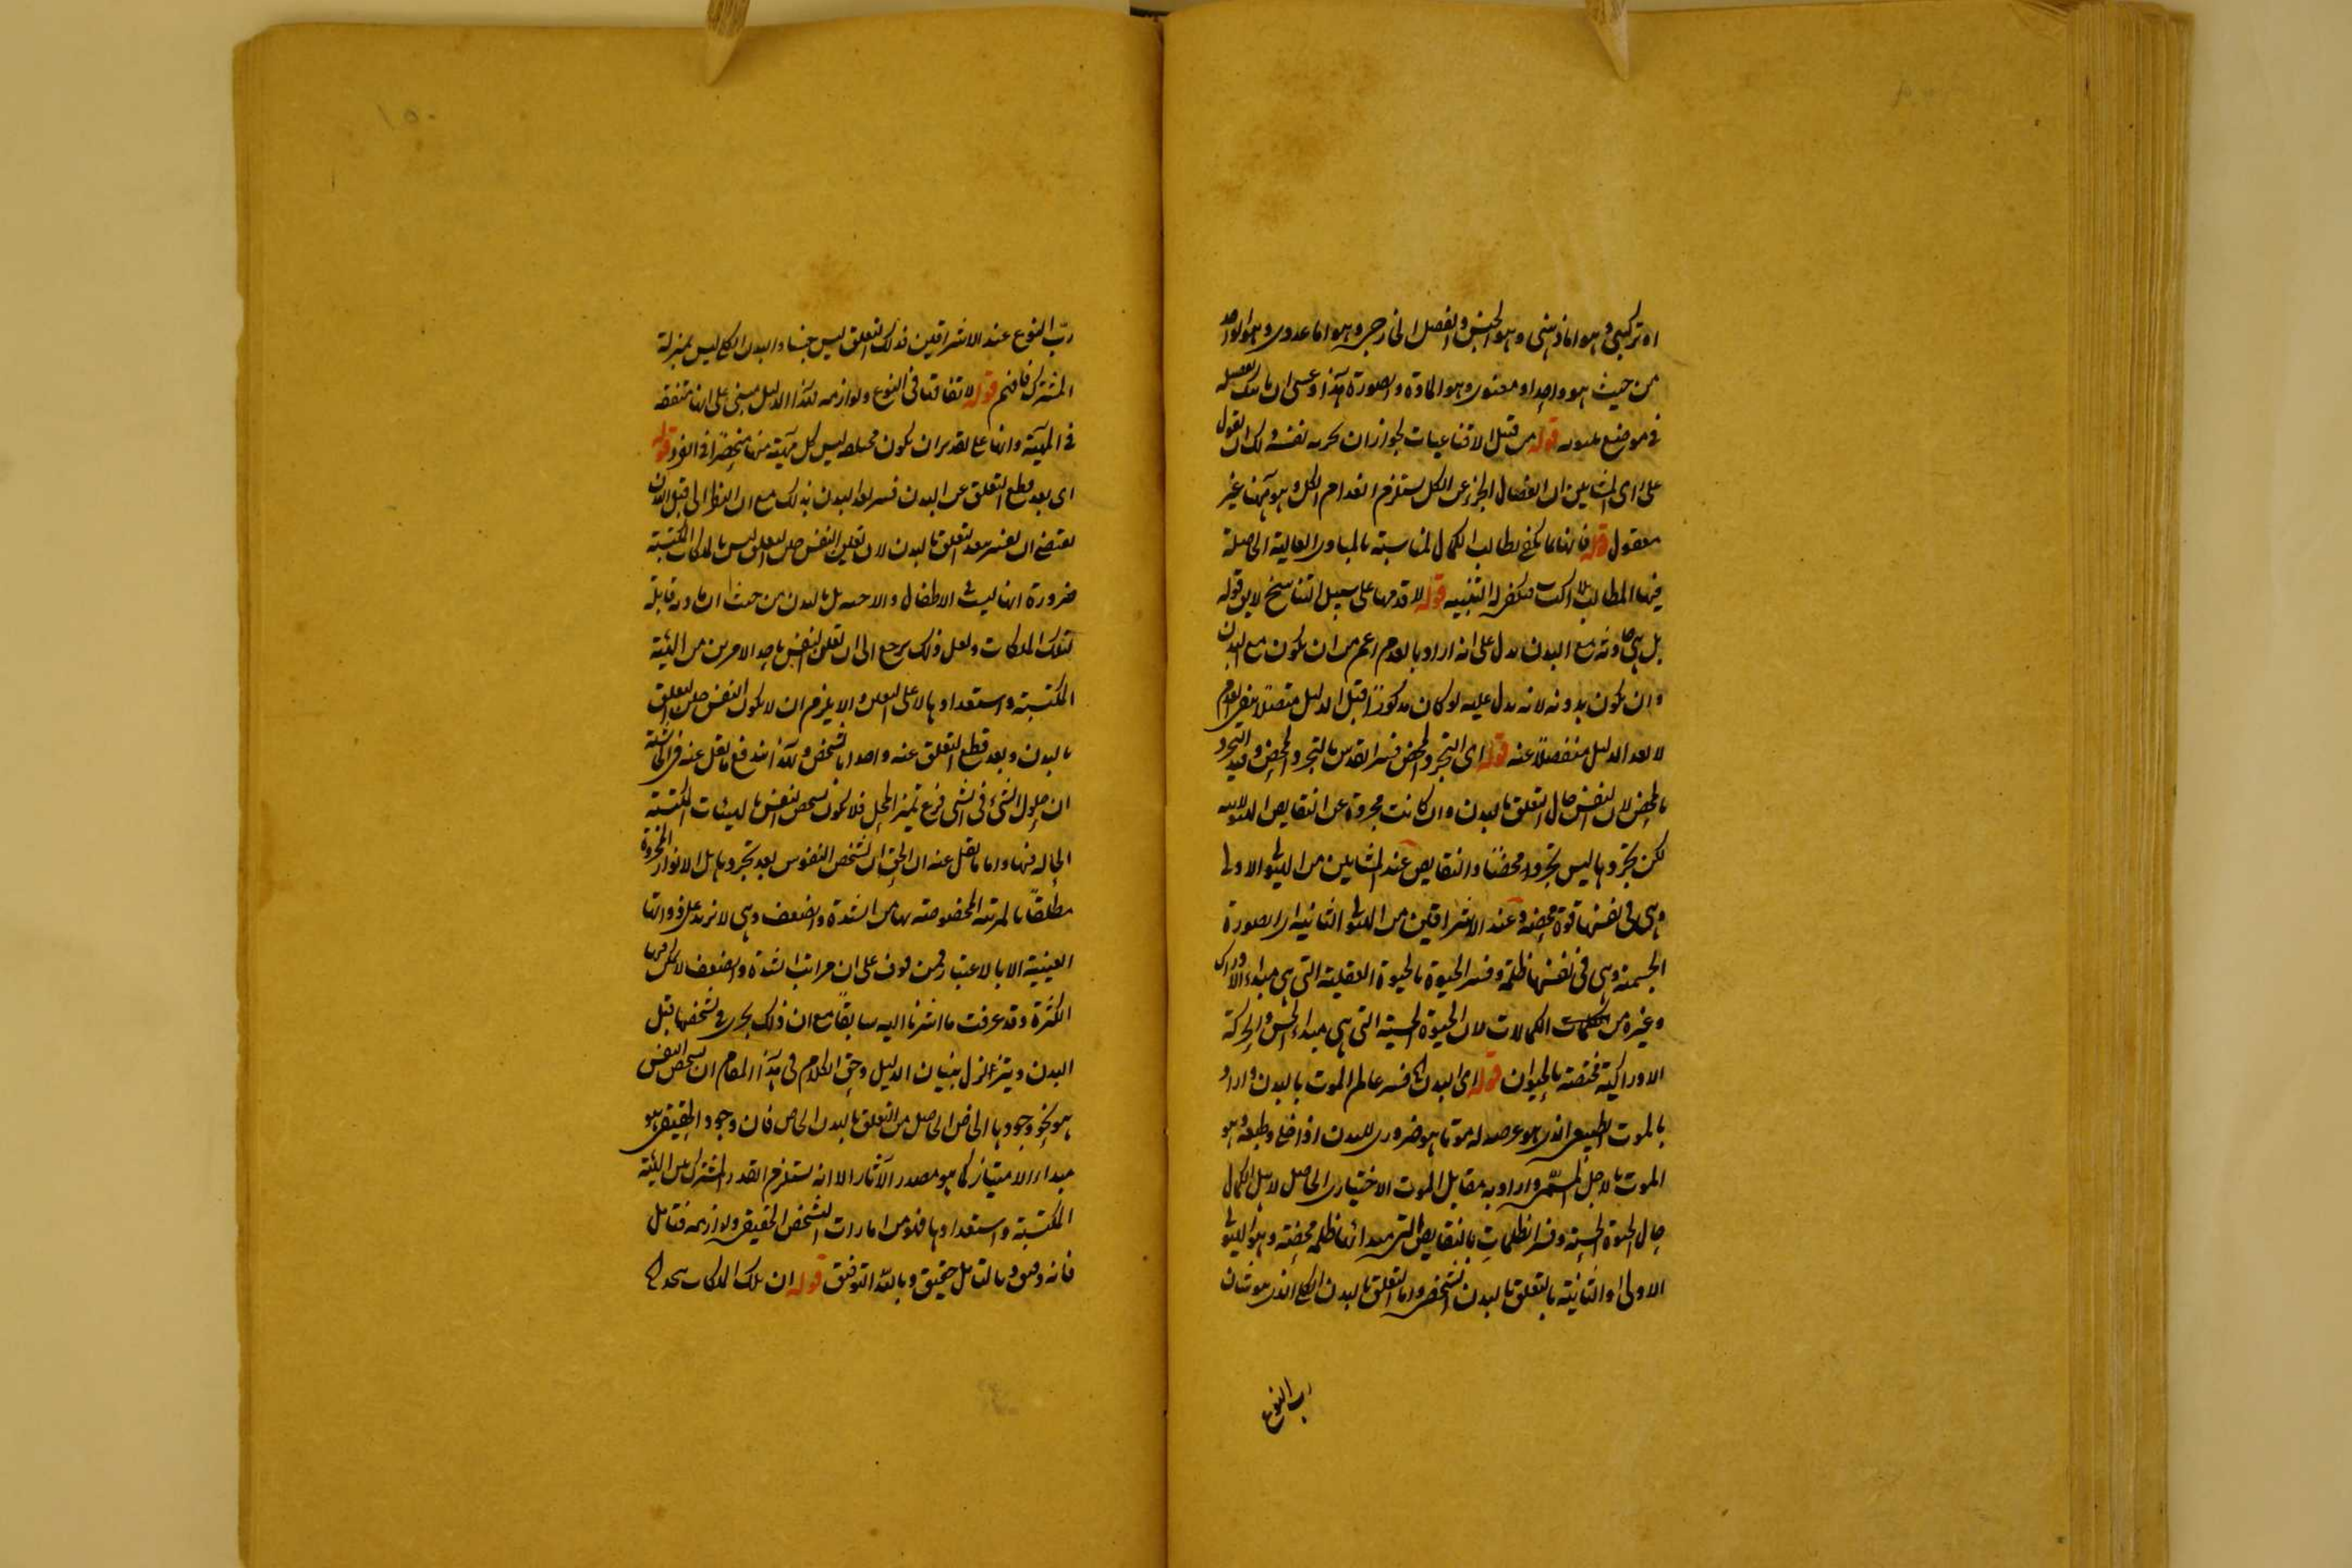 او تركيبي وهو اما ذهني وهو الجنس والفصل او خارجي وهو اما عددي وهو الواحد
من حيث هو واحد او معنوي وهو المادة والصورة هذا وعسى ان ياتيك تفصيله
في موضع يليق به قوله من قبيل الاقناعيات لجواز ان نفسه ولك ان تقول
على راي المشايين ان انفصال الجزء عن الكل يستلزم انعدام الكل وهو ههنا غير
معقول قوله فانها مما يكفي لطالب الكمال لمناسبته بالمبادي العالية الحاصلة
فيها المطالب بلا كسب فيكفي له التنبيه قوله لا قدمها على سبيل التناسخ لان قوله
بل هي حادثة مع البدن يدل على انه اراد بالقدم اعم من ان يكون مع البدن
وان يكون بدونه لانه يدل عليه لو كان مذكورا قبل الدليل متصلا بنفي القدم
لا بعد الدليل منفصلا عنه قوله اي التجرد المحض فسر القدس بالتجرد المحض وقيد التجرد
بالمحض لان النفس حال التعلق بالبدن وان كانت مجردة عن النقايص الهيولانية
لكن تجردها ليس تجردا محضا والنقايص عند المشايين من الهيولى الاولى
وهي في نفسها قوة محضة وعند الاشراقيين من الهيولى الثانية اي الصورة
الجسمية وهي في نفسها ظلمة وفسر الحيوة بالحيوة العقلية التي هي مبداء الادراك
وغيره من الكمالات لان الحيوة الحسية التي هي مبداء الحس والحركة
الادراكية مختصة بالحيوان قوله اي البدن اه فسر عالم الموت بالبدن واراد
بالموت الطبيعي الذي هو عرصة له موتا هو ضروري للبدن اذا خلى وطبعه وهو
الموت بالاجل المسمى واراد به مقابل الموت الاختياري الحاصل لاهل الكمال
حال الحيوة الحسية وفسر الظلمات بالنقايص التي مبدائها ظلمة محضة وهو الهيولى
الاولى او الثانية بالتعلق بالبدن الشخصي واما التعلق بالبدن الكلي الذي هو شان
رب النوع
رب النوع عند الاشراقيين فذلك التعلق ليس حبسا والبدن الكلي ليس بمنزلة
المشترك فافهم قوله لاتفاقها في النوع ولوازمه هذا الدليل مبني على انها متفقة
في المهية وانها على تقدير ان يكون مختلفة ليس كل مهية منها منحصرا في الفرد قوله
اي بعد قطع التعلق عن البدن فسر بعد البدن بذلك مع ان النظر الى قبل البدن
يقتضي ان يفسر ببعد التعلق بالبدن لان تعلق النفس حين التعلق ليس بالملكات المكتسبة
ضرورة انها ليست في الاطفال والاجنة بل بالبدن من حيث ان مادته قابلة
لتلك الملكات ولعل ذلك يرجع الى ان تعلق النفس باحد الامرين من الهيئة
المكتسبة واستعدادها لا على التعيين والا يلزم ان لا يكون النفس حين التعلق
بالبدن وبعد قطع التعلق عنه واحدا بالشخص وبهذا اندفع ما نقل عنه في الحاشية
ان حلول الشيء في الشيء فرع تميز المحل فلا يكون تشخص النفس بالهيئات المكتسبة
الحالة فيها واما ما نقل عنه ان الحق ان تشخص النفوس بعد تجردها بل الانوار المجردة
مطلقا بالمرتبة المخصوصة بها من الشدة والضعف وهي لا تزيد على ذواتها
العينية الا بالاعتبار فمن قوف على ان مراتب الشدة والضعف لا يمكن فيها
الكثرة وقد عرفت ما اشرنا اليه سابقا مع ان ذلك يجري في تشخصها قبل
البدن ويتزلزل بنيان الدليل وحق الكلام في هذا المقام ان تشخص النفس
هو نحو وجودها الخاص الحاصل من التعلق بالبدن الخاص فان وجود الحقيقي هو
مبداء الامتياز كما هو مصدر الآثار الا انه يستلزم القدر المشترك بين الهيئة
المكتسبة واستعدادها فهو من امارات التشخص الحقيقي ولوازمه فتامل
فانه دقيق وبالتامل حقيق وبالله التوفيق قوله ان تلك الملكات يتحد اه